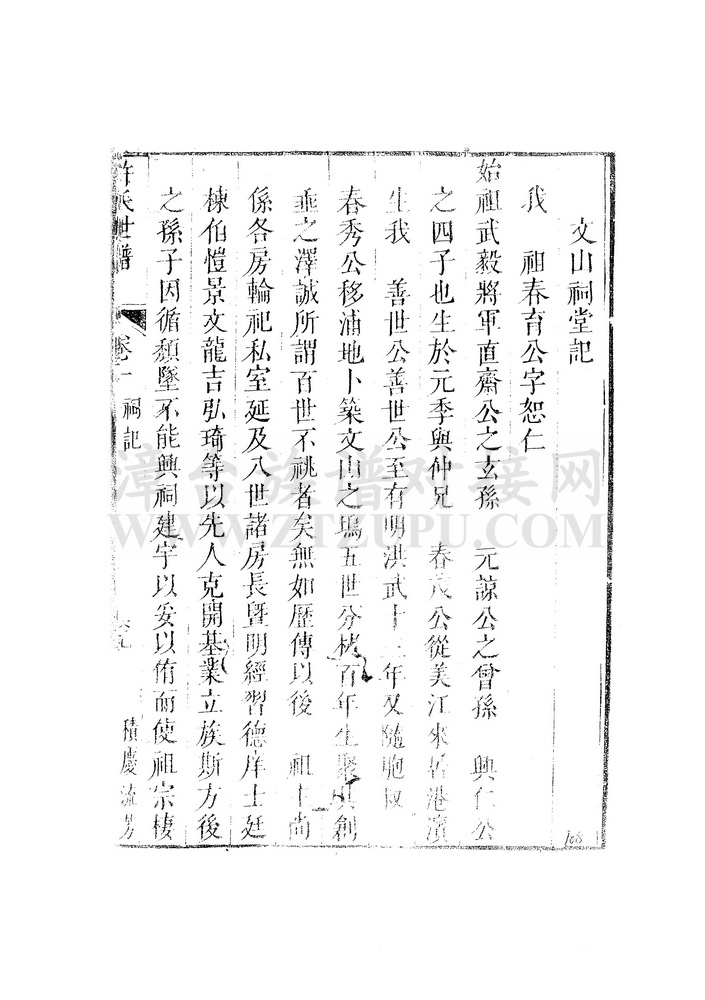 文山祠堂記
我　祖春育公字恕仁
始祖武毅將軍直齋公之玄孫　元諒公之曾孫　興仁公
之四子也生於元季與仲兄　春茂公從美江來居港濱
生我　善世公善世公至有明洪武十二年又隨胞叔
春秀公移浦地卜築文山之塢五世分栳百年生聚其創
垂之澤誠所謂百世不祧者矣無如歷傳以後　祖主尚
係各房輪祀私室延及八世諸房長曁明經習德庠士廷
棟伯愷景文龍吉弘琦等以先人克開基業立族斯方後
之孫子因循頹墜不能興祠建宇以妥以侑而使祖宗棲
許氏世譜　卷一　祠記　積慶流芳
108
漳台族谱对接网
WWW.ZTZUPU.COM